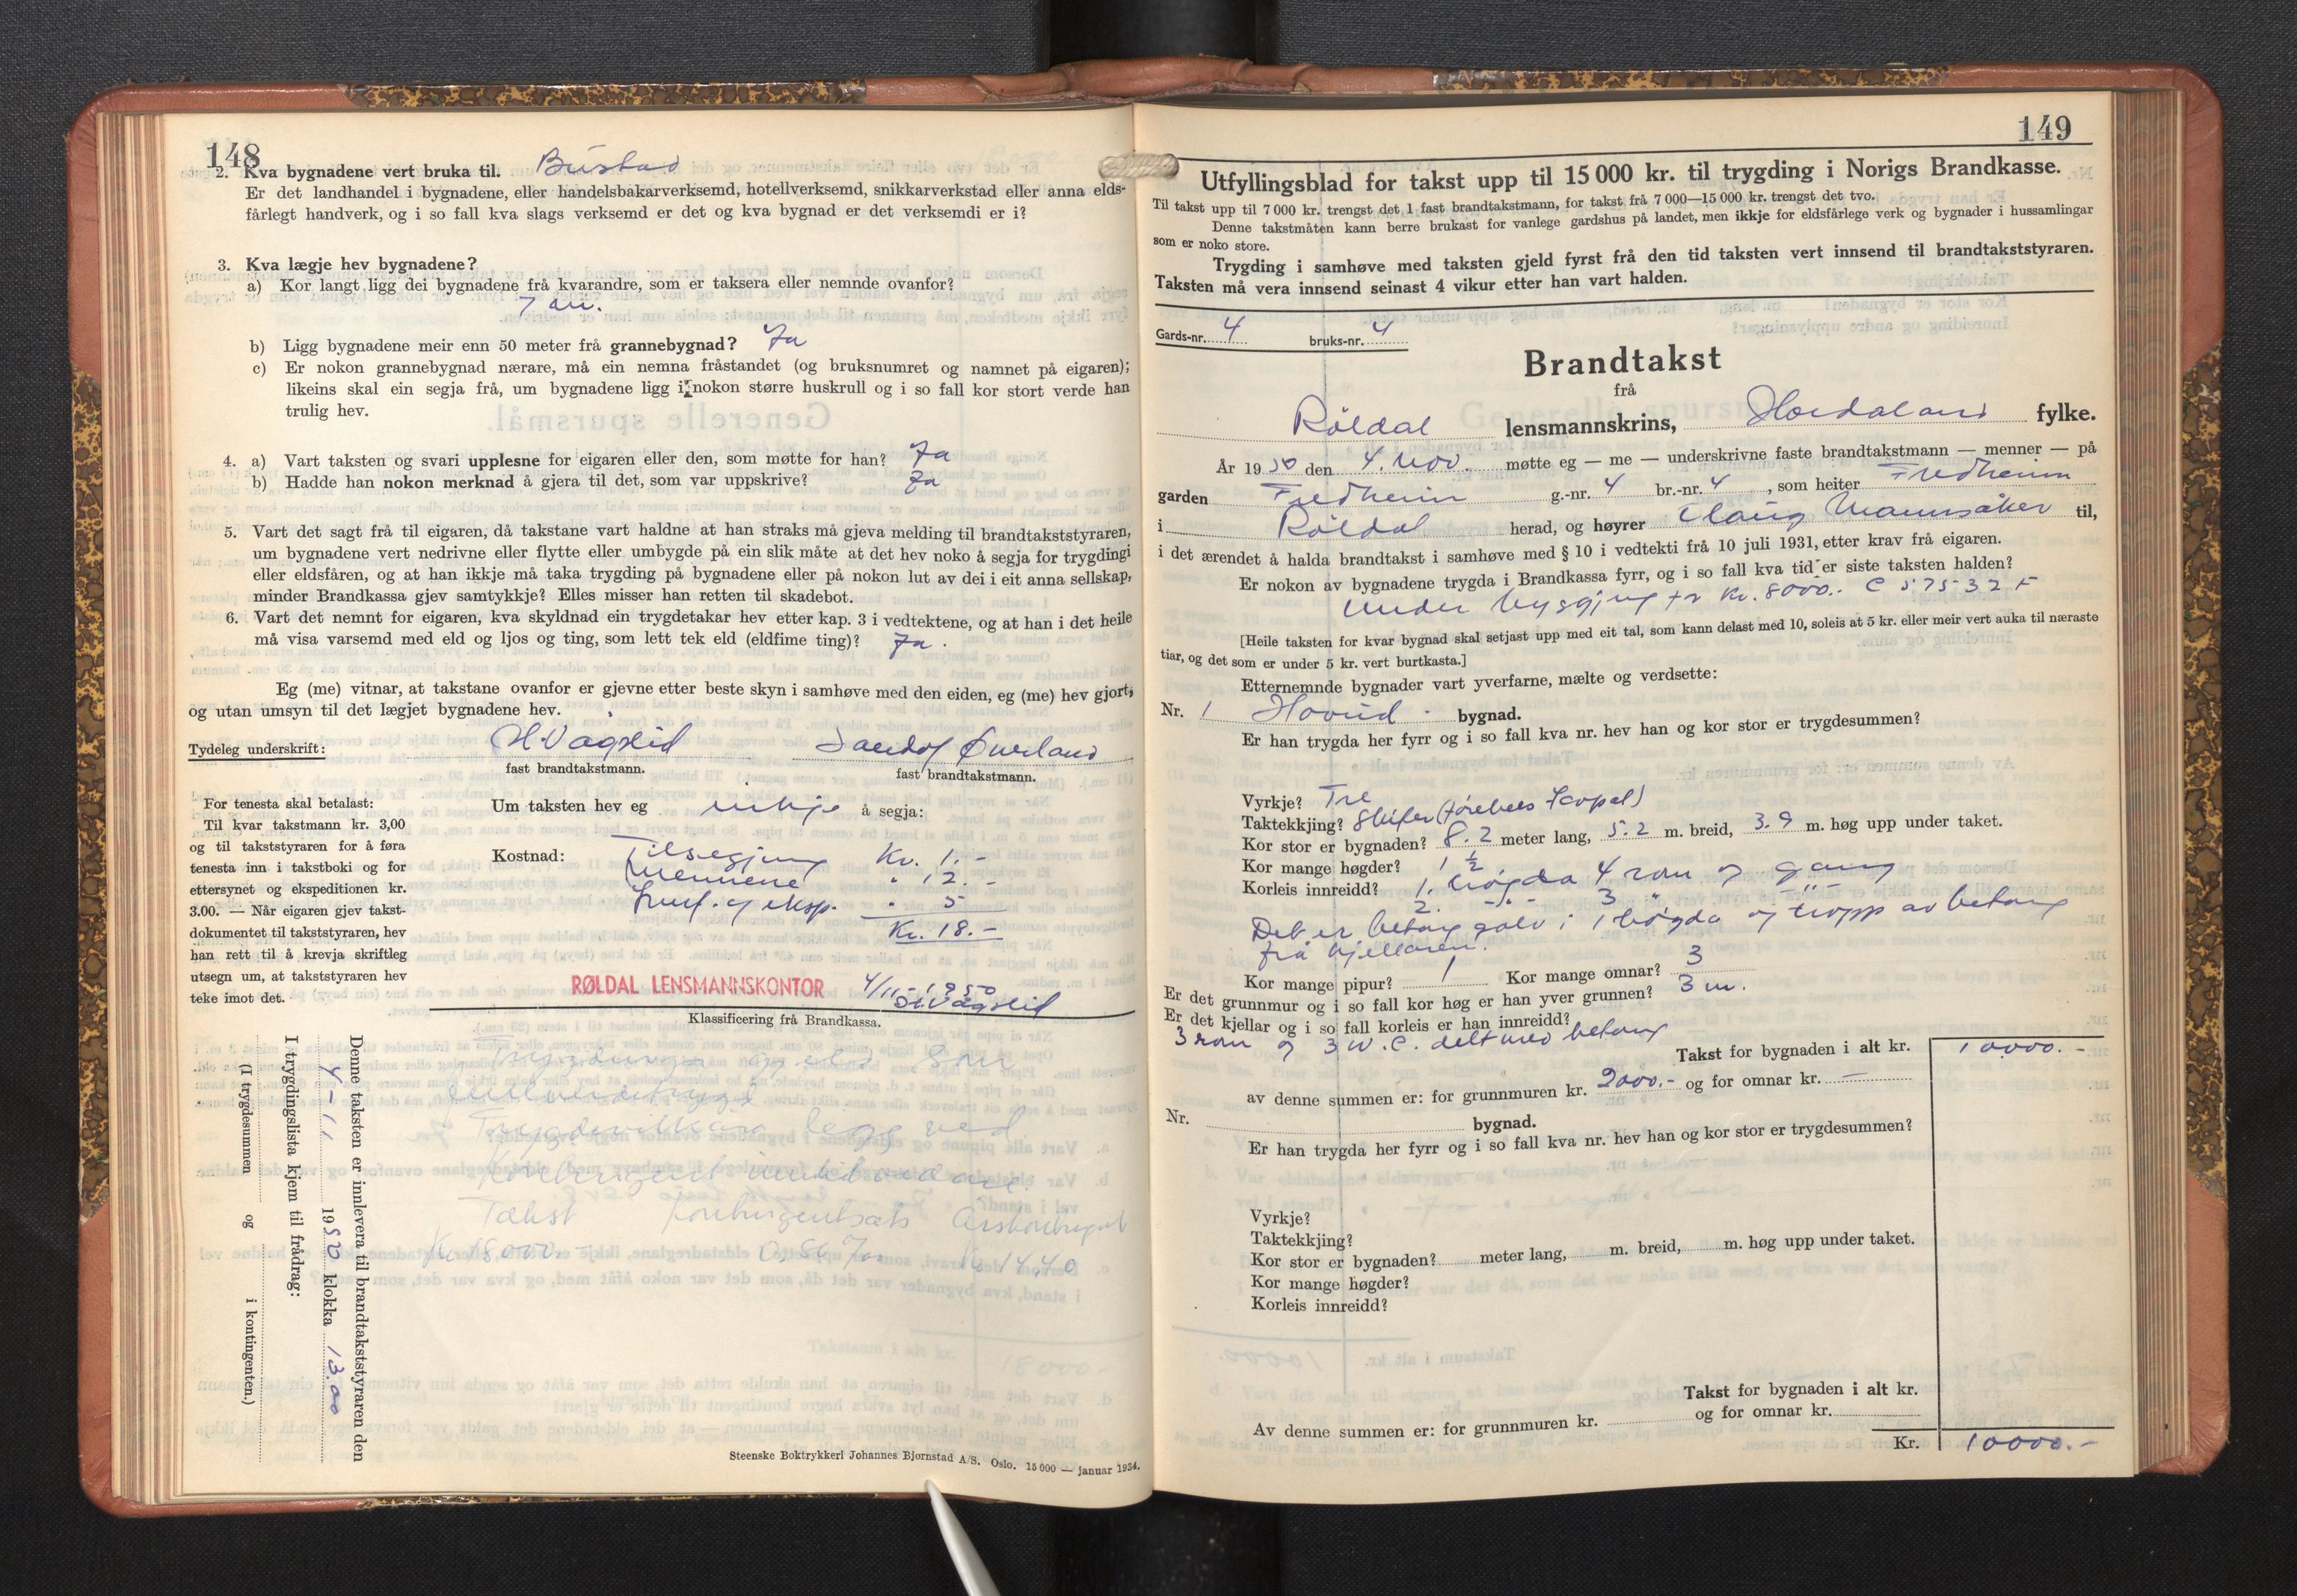 148
2. Kva bygnadene vert bruka til. Bustad
Er det landhandel i bygnadene, eller handelsbakarverksemd, hotellverksemd, snikkarverkstad eller anna elds-
fårlegt handverk, og i so fall kva slags verksemd er det og kva bygnad er det verksemdi er i?
3. Kva lægje hev bygnadene?
a) Kor langt ligg dei bygnadene frå kvarandre, som er taksera eller nemnde ovanfor?
7 m.
b) Ligg bygnadene meir enn 50 meter frå grannebygnad? Ja
c) Er nokon grannebygnad nærare, må ein nemna fråstandet (og bruksnumret og namnet på eigaren);
likeins skal ein segja frå, um bygnadene ligg i nokon større huskrull og i so fall kor stort verde han
trulig hev.
4. a) Vart taksten og svari upplesne for eigaren eller den, som møtte for han? Ja
b) Hadde han nokon merknad å gjera til det, som var uppskrive? Ja
5. Vart det sagt frå til eigaren, då takstane vart haldne at han straks må gjeva melding til brandtakststyraren,
um bygnadene vert nedrivne eller flytte eller umbygde på ein slik måte at det hev noko å segja for trygdingi
eller eldsfåren, og at han ikkje må taka trygding på bygnadene eller på nokon lut av dei i eit anna sellskap,
minder Brandkassa gjev samtykkje? Elles misser han retten til skadebot.
6. Vart det nemnt for eigaren, kva skyldnad ein trygdetakar hev etter kap. 3 i vedtektene, og at han i det heile
må visa varsemd med eld og ljos og ting, som lett tek eld (eldfime ting)? Ja.
Eg (me) vitnar, at takstane ovanfor er gjevne etter beste skyn i samhøve med den eiden, eg (me) hev gjort,
og utan umsyn til det lægjet bygnadene hev.
Tydeleg underskrift: H Vågslid Sandolf Øverland
fast brandtakstmann. fast brandtakstmann.
For tenesta skal betalast:
Til kvar takstmann kr. 3,00
og til takststyraren for å føra
tenesta inn i takstboki og for
ettersynet og ekspeditionen kr.
3.00. — Når eigaren gjev takst-
dokumentet til takststyraren, hev
han rett til å krevja skriftleg
utsegn um, at takststyraren hev
teke imot det.
Um taksten hev eg inkje å segja:
Kostnad: Tilsegjing Kr. 1.-
Mennene " 12.-
Innf. og eksp. " 5
Kr. 18.-
RØLDAL LENSMANNSKONTOR 4/11-1950
H Vågslid
Klassificering frå Brandkassa.
Trygdevilkåra legg ved
Kontingent
Takst Kontingentsats Årskontingent
Kr 18000.- Kr 14,40
Denne taksten er innlevera til brandtakststyraren den
4-11 1950 klokka 13.00
I trygdingslista kjem til frådrag:
(I trygdesummen og i kontingenten.)
Steenske Boktrykkeri Johannes Bjørnstad A/S. Oslo. 15000 — januar 1934.
149
Utfyllingsblad for takst upp til 15 000 kr. til trygding i Norigs Brandkasse.
Til takst upp til 7 000 kr. trengst det 1 fast brandtakstmann, for takst frå 7 000—15 000 kr. trengst det tvo.
Denne takstmåten kann berre brukast for vanlege gardshus på landet, men ikkje for eldsfårlege verk og bygnader i hussamlingar
som er noko store.
Trygding i samhøve med taksten gjeld fyrst frå den tid taksten vert innsend til brandtakststyraren.
Taksten må vera innsend seinast 4 vikur etter han vart halden.
Gards-nr. 4 bruks-nr. 4
Brandtakst
frå
Röldal lensmannskrins, Hordaland fylke.
År 1950 den 4. nov. møtte eg — me — underskrivne faste brandtakstmann — menner — på
garden Fredheim g.-nr. 4 br.-nr. 4, som heiter Fredheim
i Röldal herad, og høyrer Maursåker til,
i det ærendet å halda brandtakst i samhøve med § 10 i vedtekti frå 10 juli 1931, etter krav frå eigaren.
Er nokon av bygnadene trygda i Brandkassa fyrr, og i so fall kva tid er siste taksten halden?
Under bygging for Kr. 8000.- C 57532 F
[Heile taksten for kvar bygnad skal setjast upp med eit tal, som kann delast med 10, soleis at 5 kr. eller meir vert auka til næraste
tiar, og det som er under 5 kr. vert burtkasta.]
Etternemnde bygnader vart yverfarne, mælte og verdsette:
Nr. 1 Hovud- bygnad.
Er han trygda her fyrr og i so fall kva nr. hev han og kor stor er trygdesummen?
Vyrkje? Tre
Taktekkjing? Skifer
Kor stor er bygnaden? 8.2 meter lang, 5.2 m. breid, 3.9 m. høg upp under taket.
Kor mange høgder? 1 ½
Korleis innreidd? 1. högda 4 rom og gang
2. -"- 3 " -"-
Det er betong golv i 1 högda og tropp av betong
frå kjellaren.
Kor mange pipur? 1 Kor mange omnar? 3
Er det grunnmur og i so fall kor høg er han yver grunnen? 3 m.
Er det kjellar og i so fall korleis er han innreidd?
3 rom og 3 W.C. delt med betong
Takst for bygnaden i alt kr. 10000.-
av denne summen er: for grunnmuren kr. 2000.- og for omnar kr. —
Nr. bygnad.
Er han trygda her fyrr og i so fall kva nr. hev han og kor stor er trygdesummen?
Vyrkje?
Taktekkjing?
Kor stor er bygnaden? meter lang, m. breid, m. høg upp under taket.
Kor mange høgder?
Korleis innreidd?
Takst for bygnaden i alt kr.
Av denne summen er: for grunnmuren kr. og for omnar kr.
Kr. 10000.-